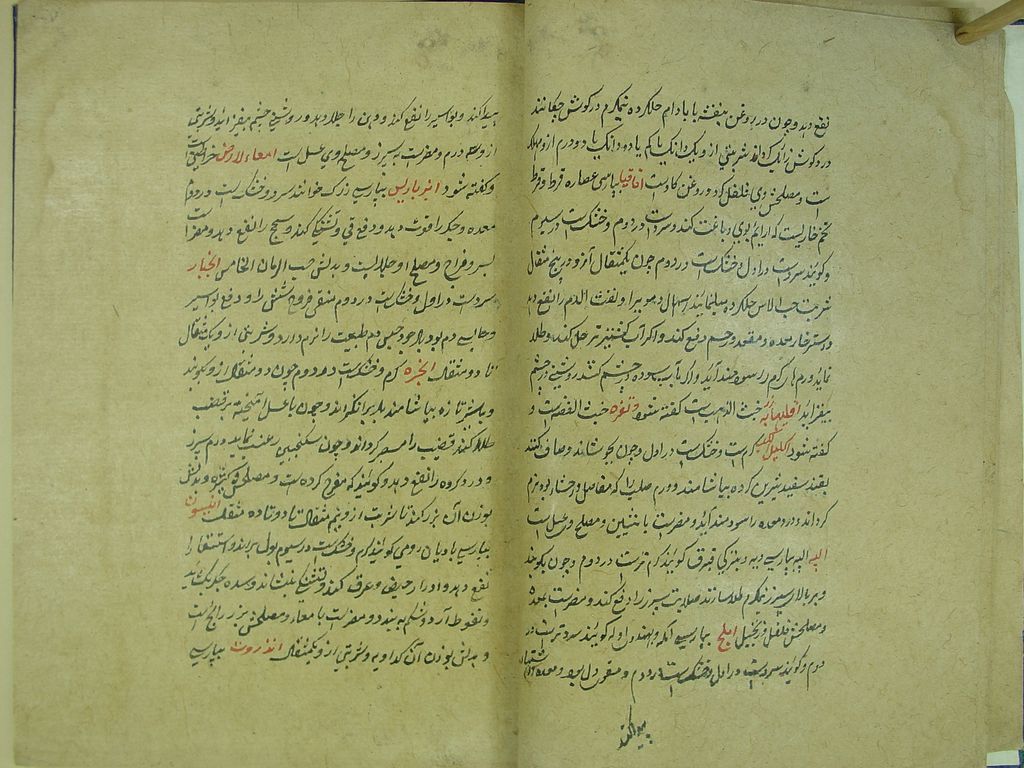 نفع دهد و چون در روغن بنفشه یا بادام حل کرده نیم گرم در گوش چکانند
درد گوش زایل کرداند شربتی از و یک دانک یا دو دانک یا دو درم از و مهلک
است و مصلحش وی فلفل کرد و روغن کاوست اقاقیا بپارسی عصاره قرط و قرط
تخم خاریست که از ایم بوی دباغت کنند و سردست در دوم و خشکست در سیوم
و کویند سردست در اول و خشکست در دوم چون یکمثقال از و در پنج مثقال
شربت حب الاس حل کرده بیاشامند اسهال دموی را و نفث الدم را نفع دهد
و استرخاء معده و مقعد و رحم دفع کند و اگر آب کشنیز تر حل کنند و طلا
نمایند ورم های کرم را سود مند آید و اگر بآب سوده در چشم کشند روشنی چشم
بیفزاید اقلیمیا خبث الذهب است گفته شود و نقره خبث الفضه است و
گفته شود اکلیل الملک کرم است و خشکست در اول و چون بجوشانند و صاف کنند
بقند سفید شیرین کرده بیاشامند ورم صلب را که مفاصل و احشا بود نرم
کرداند و درد معده را سودمند آید و مضرست بانثیین و مصلح وی عسل است
الیه الیه بپارسی دنبه و بترکی قیرق کویند کرم ترست در دوم و چون بکوبند
و بر بالای سپرز نیم گرم طلا سازند صلابت سپرز را دفع کند و مضرست بمعده
و مصلحش فلفل و زنجبیل املج بپارسی آمله و بهندی اوله کویند سرد ترست در
دوم و کویند سردست در اول و خشکست در دوم و مقوی دل بود و معده و اشتها
پیدا کند
پیدا کند و بواسیر را نفع کند و ذهن را جلا دهد و روشنی چشم بیفزاید و شربتی
از و سه درم و مضرست به سپرز و مصلح وی عسل است امعاء الارض خراطین است
و گفته شود انبرباریس بپارسی زرک خوانند سرد و خشکست در دوم
معده و جکر را قوت دهد و دفع قی و تشنکی کند و سحج را نفع دهد و مضر است
بسر و مزاج و مصلح او جلابست و بدلش حب الرمان الحامض انجبار
سردست در اول و خشکست در دوم منقی قروح شش را و دفع بواسیر
و حابس دم بود از هر چه حبس دم طبیعت را نرم دارد و شربتی از و یک مثقال
تا دو مثقال انجره کرم و خشکست در دوم چون دو مثقال از و بکوبند
و با شیر تازه بیاشامند باه برانکیزاند و چون با عسل آمیخته بر قضیب
طلا کنند قضیب را سطبر کرداند و چون سکنجبین رغبت نمایند ورم سپرز
و درد کرده را نفع دهد و کویند که مقرح کرده است و مصلحش کتیره و بدلش
بوزن آن بزر کتان شربت از و نیم مثقال تا دو تا ده مثقال انیسون
بپارسی بادیان رومی کویند کرم و خشکست در سیوم بول براند و استسقا را
نفع دهد و ادرار حیض و عرق کند و تشنکی بنشاند و سده جکر بکشاید
و نفوط آرد و شکم به بندد و مضرست بامعاء و مصلحش بزر رازیانج است
و بدلش بوزن آن کراویه و شربتی از و یکمثقال انزروت بپارسی